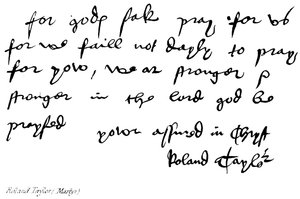 for gods sak pray for us
for we faill not dayly to pray
for yow, we ar stronger &
stronger in the lord god be
praysed yowr assured in Chryst
Roland Taylor
Roland Taylor: Martyr)